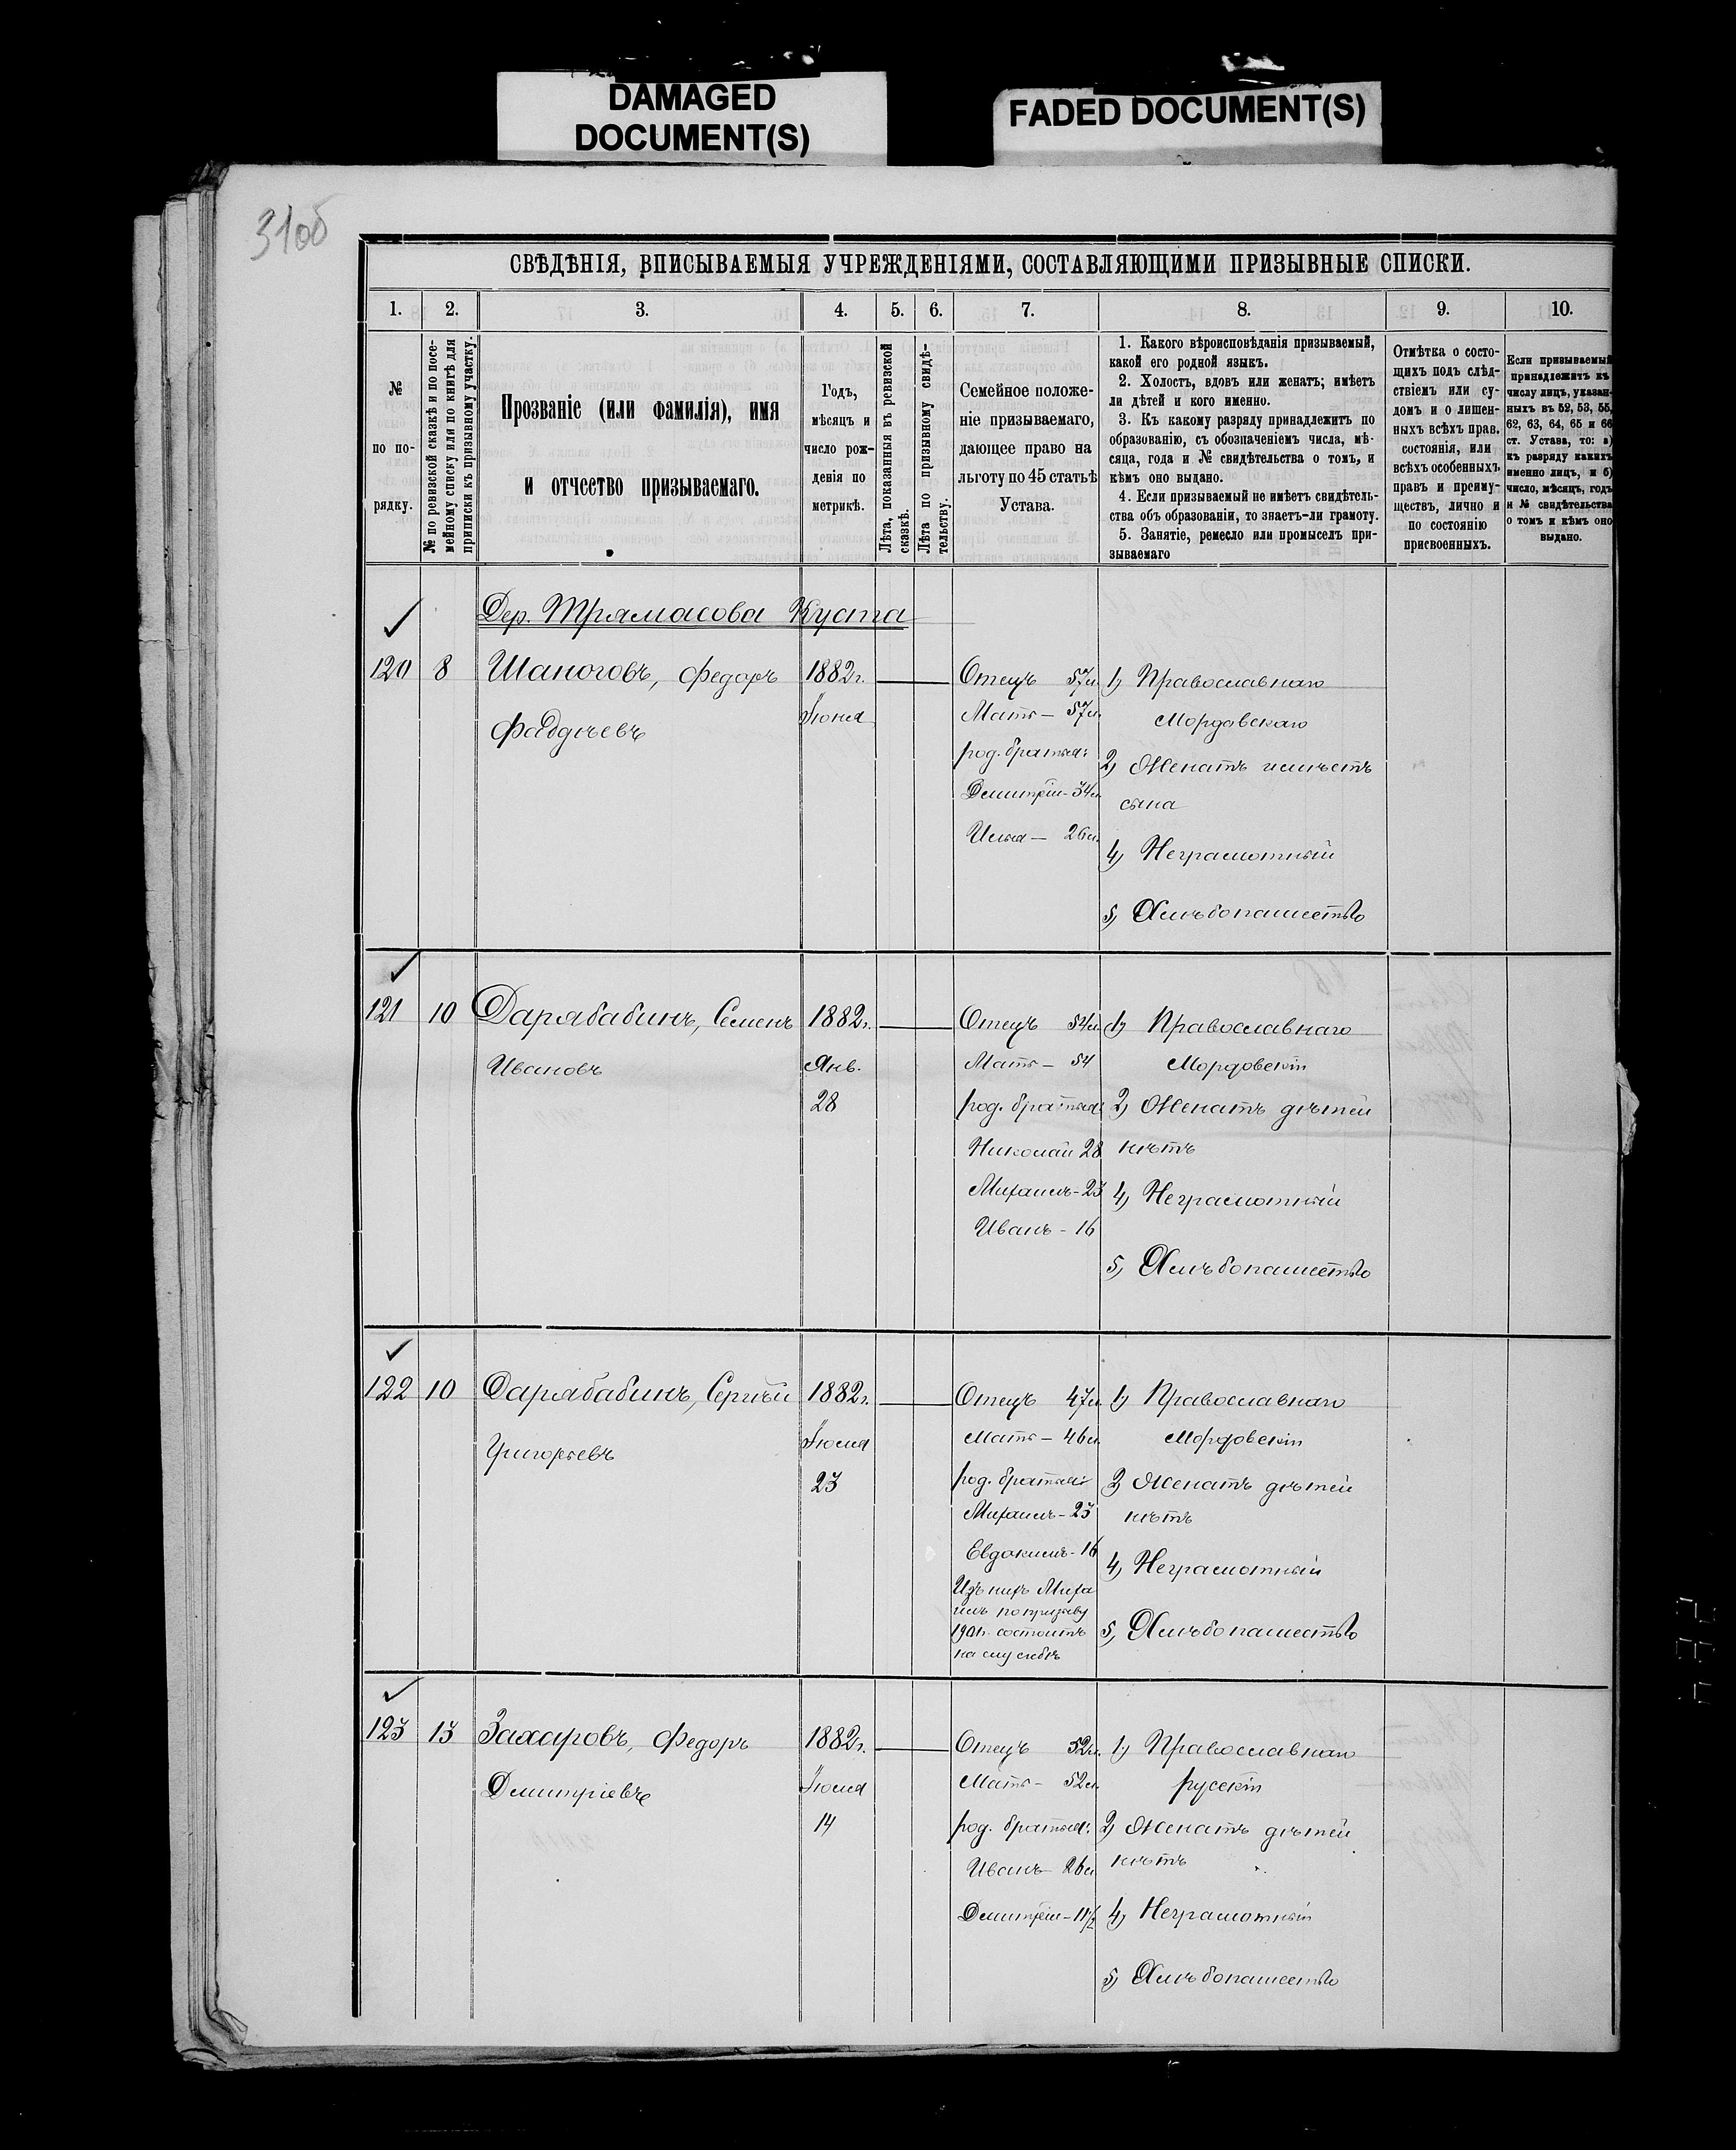 DAMAGED
DOCUMENT(S)
FADED DOCUMENT(S)
31об
СВѢДѢНІЯ, ВПИСЫВАЕМЫЯ УЧРЕЖДЕНІЯМИ, СОСТАВЛЯЮЩИМИ ПРИЗЫВНЫЕ СПИСКИ.
1. 2. 3. 4. 5. 6. 7. 8. 9. 10.
№
по по-
рядку.
№ по ревизской сказкѣ и по посе-
мейному списку или по книгѣ для
приписки къ призывному участку.
Прозваніе (или фамилія), имя
и отчество призываемаго.
Годъ,
мѣсяцъ и
число рож-
денія по
метрикѣ.
Лѣта, показанныя въ ревизской
сказкѣ.
Лѣта по призывному свидѣ-
тельству.
Семейное положе-
ніе призываемаго,
дающее право на
льготу по 45 статьѣ
Устава.
1. Какого вѣроисповѣданія призываемый,
какой его родной языкъ.
2. Холостъ, вдовъ или женатъ; имѣетъ
ли дѣтей и кого именно.
3. Къ какому разряду принадлежитъ по
образованію, съ обозначеніемъ числа, мѣ-
сяца, года и № свидѣтельства о томъ, и
кѣмъ оно выдано.
4. Если призываемый не имѣетъ свидѣтель-
ства объ образованіи, то знаетъ-ли грамоту.
5. Занятіе, ремесло или промыселъ при-
зываемаго
Отмѣтка о состо-
щихъ подъ слѣд-
ствіемъ или су-
домъ и о лишен-
ныхъ всѣхъ прав.
состоянія, или
всѣхъ особенныхъ
правъ и преиму-
ществъ, лично и
по состоянію
присвоенныхъ.
Если призываемый
принадлежитъ къ
числу лицъ, указан-
ныхъ въ 52, 53, 55,
62, 63, 64, 65 и 66
ст. Устава, то: а)
къ разряду какихъ
именно лицъ, и б)
число, мѣсяцъ, годъ
и № свидѣтельства
о томъ и кѣмъ оно
выдано.
Дер. Трямасова Куста
120 8 Шаноговъ, Федоръ
Фаддѣевъ
1882г.
Іюня
Отецъ 57л.
Мать — 57л.
род. братья:
Дмитрій - 34л
Илья — 26л.
1) Православнаго
Мордовскаго
2) Женатъ имѣетъ
сына
4) Неграмотный
5) Хлѣбопашество
121 10 Дарябабинъ, Семенъ
Ивановъ
1882г.
Янв.
28
Отецъ 54л
Мать — 54
род. братья:
Николай 28
Михаилъ - 23
Иванъ - 16
1) Православнаго
Мордовскій
2) Женатъ дѣтей
нѣтъ
4) Неграмотный
5) Хлѣбопашество
122 10 Дарябабинъ, Сергѣй
Григорьевъ
1882г.
Іюля
23
Отецъ 47л
Мать — 46л
род. братья:
Михаилъ - 23
Евдокимъ - 16
Изъ нихъ Миха
илъ по призыву
190 г. состоитъ
на службѣ
1) Православнаго
Мордовскій
2) Женатъ дѣтей
нѣтъ
4) Неграмотный
5) Хлѣбопашество
123 13 Захаровъ, Федоръ
Дмитріевъ
1882г.
Іюля
14
Отецъ 52л.
Мать - 52л
род. братья:
Иванъ - 26л
Дмитрій - 11½
1) Православнаго
русскій
2) Женатъ дѣтей
нѣтъ
4) Неграмотный
5) Хлѣбопашество